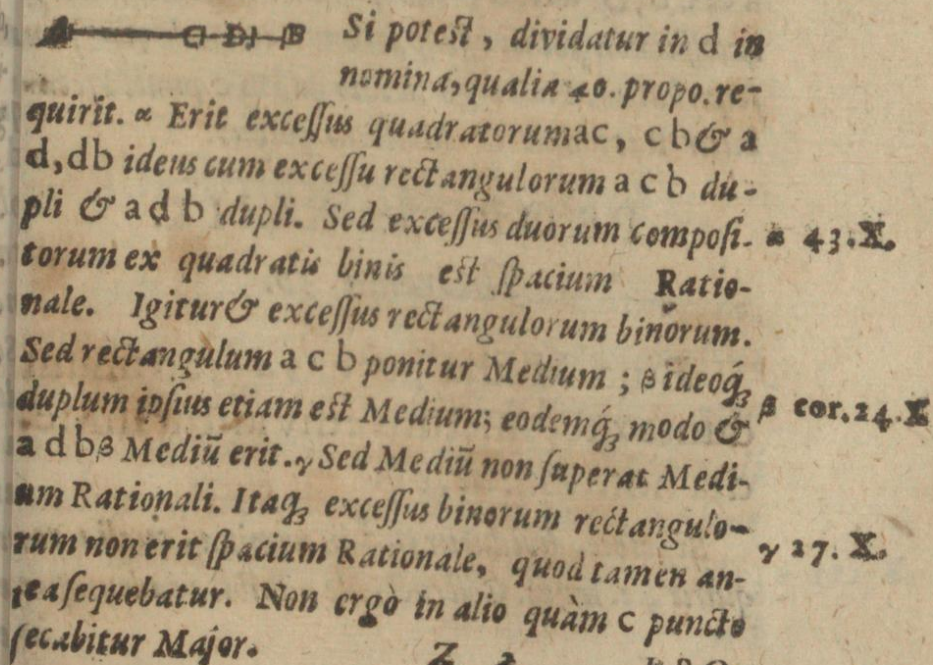 A C D B Si potest, dividatur in d in
nomina, qualia 40. propo. re-
quirit. α Erit excessus quadratorum ac, cb & a
d, db idem cum excessu rectangulorum a c b du-
pli & a d b dupli. Sed excessus duorum composi- α 43. X.
torum ex quadratis binis est spacium Ratio-
nale. Igitur & excessus rectangulorum binorum.
Sed rectangulum a c b ponitur Medium ; β ideoq́ꝫ
duplum ipsius etiam est Medium; eodemq́ꝫ modo & β cor. 24. X
a d b β Mediū erit. γ Sed Mediū non superat Medi-
um Rationali. Itaqꝫ excessus binorum rectangulo-
rum non erit spacium Rationale, quod tamen an- γ 27. X.
tea sequebatur. Non ergò in alio quàm c puncto
secabitur Major.
Z 2